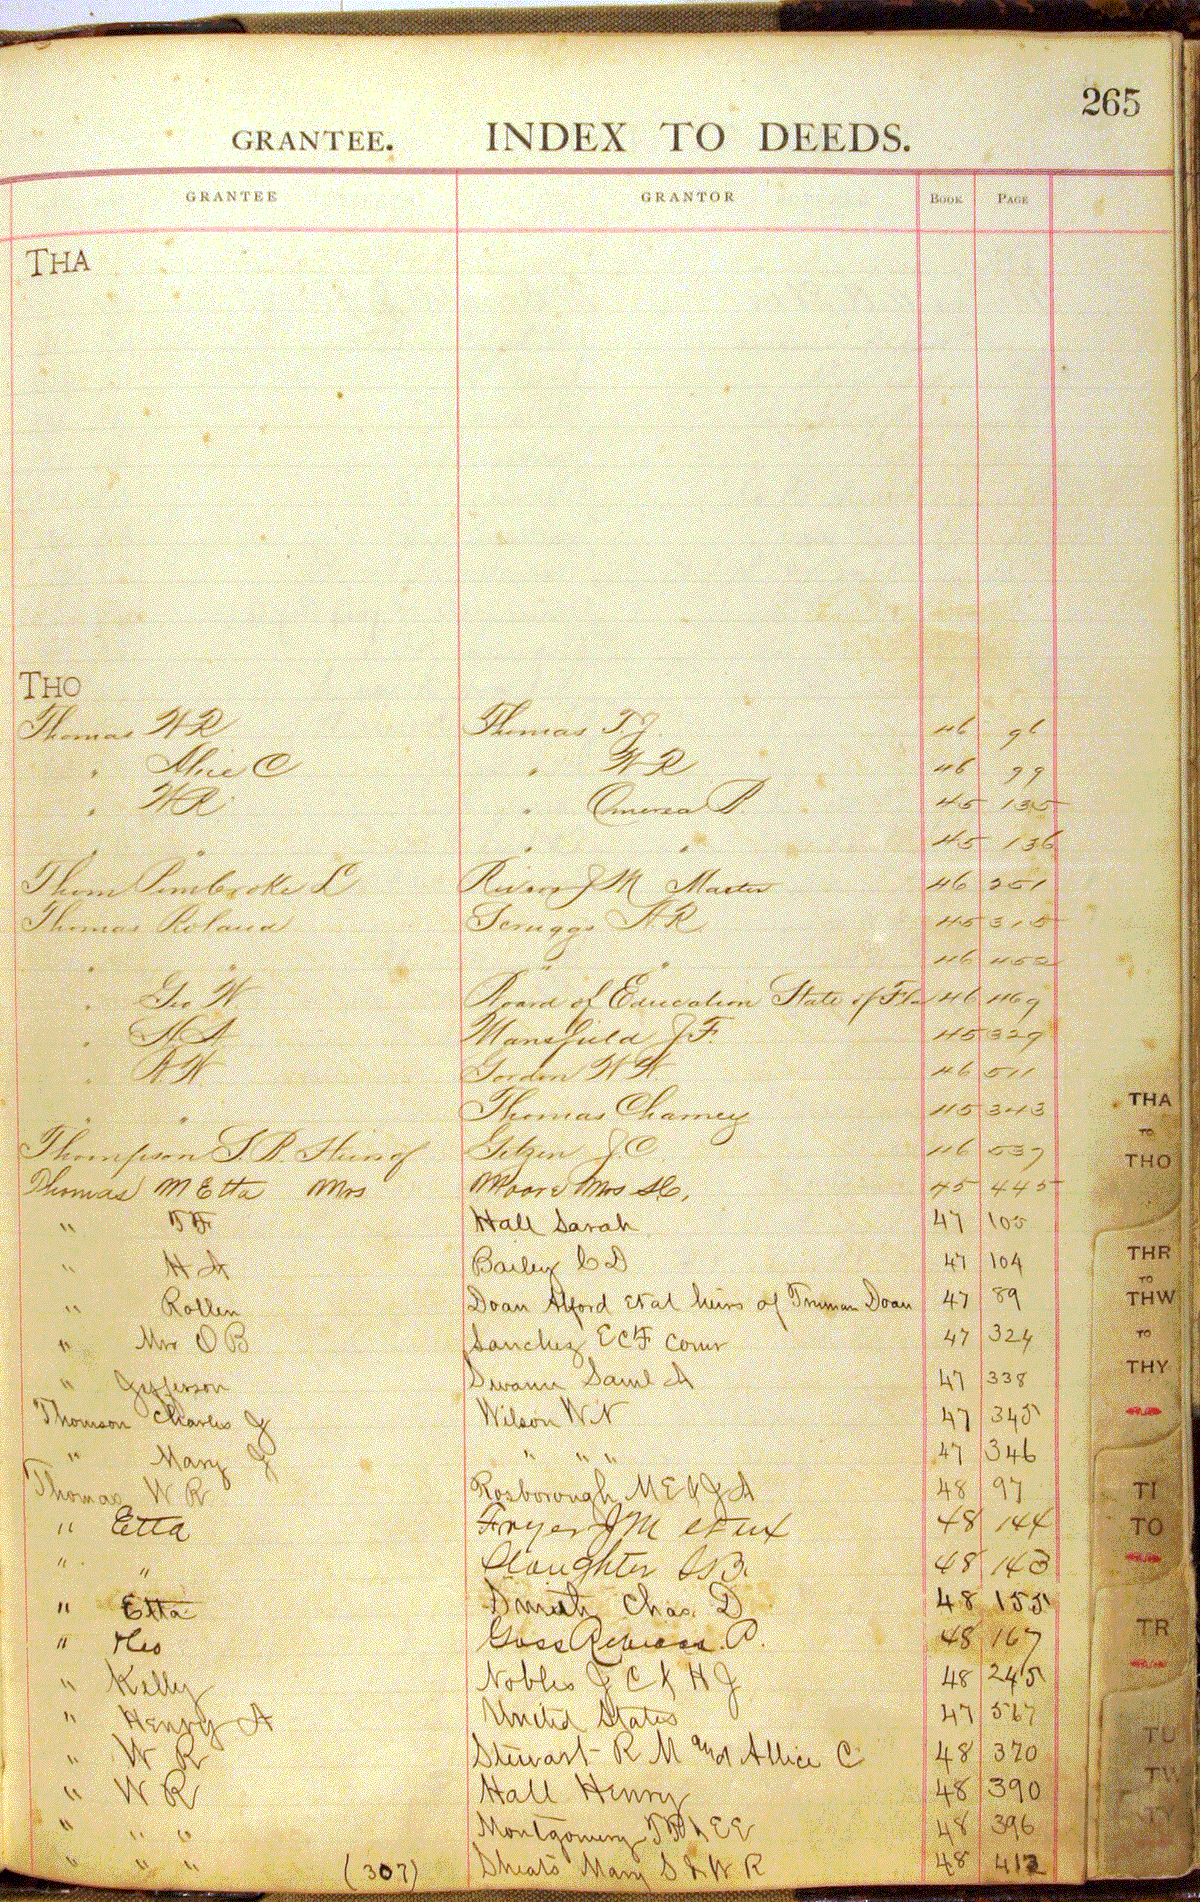 265
GRANTEE. INDEX TO DEEDS.
GRANTEE GRANTOR BOOK PAGE
THA
THO
Thomas W R Thomas T. J. 46 96
" Alice C " W R 46 99
" W R " Omerea P. 45 135
" " " " 45 136
Thom Pembroke L Rivers J M Master 46 251
Thomas Roland Scruggs A R 45 315
" " " " 46 452
" Geo W. Board of Education State of Fla 46 469
" A A Mansfield J F. 45 329
" W Gordon W H. 46 511
" " Thomas Charney 45 343
Thompson S. B. Getzen J. C. 46 537
Thomas M Etta Mrs Moore Mrs 45 445
" T F Hall Sarah 47 105
" H A Bailey C D 47 104
" Rollen Doan Alford et al heirs of Truman Doan 47 89
" Mrs O B Sanchez E C F Comr 47 324
" Jefferson Swann Saml A 47 338
Thomson Charles J Wilson W N 47 345
" Mary G " " " 47 346
Thomas W R Rosborough M E & J A 48 97
" Etta Fryer J M et ux 48 144
" " Slaughter B. 48 143
" Etta Smith Chas. D 48 155
" Geo Goss Rebecca P. 48 167
" Kelly Nobles J C & H J 48 245
" Henry A United States 47 567
" W R Stewart R M and Allice C 48 370
" W R Hall Henry 48 390
" " " Montgomery & E E 48 396
" " " (307) Sheats Mary S & W R 48 412
THA
TO
THO
THR
TO
THW
TO
THY
TI
TO
TR
TU
TW
TY